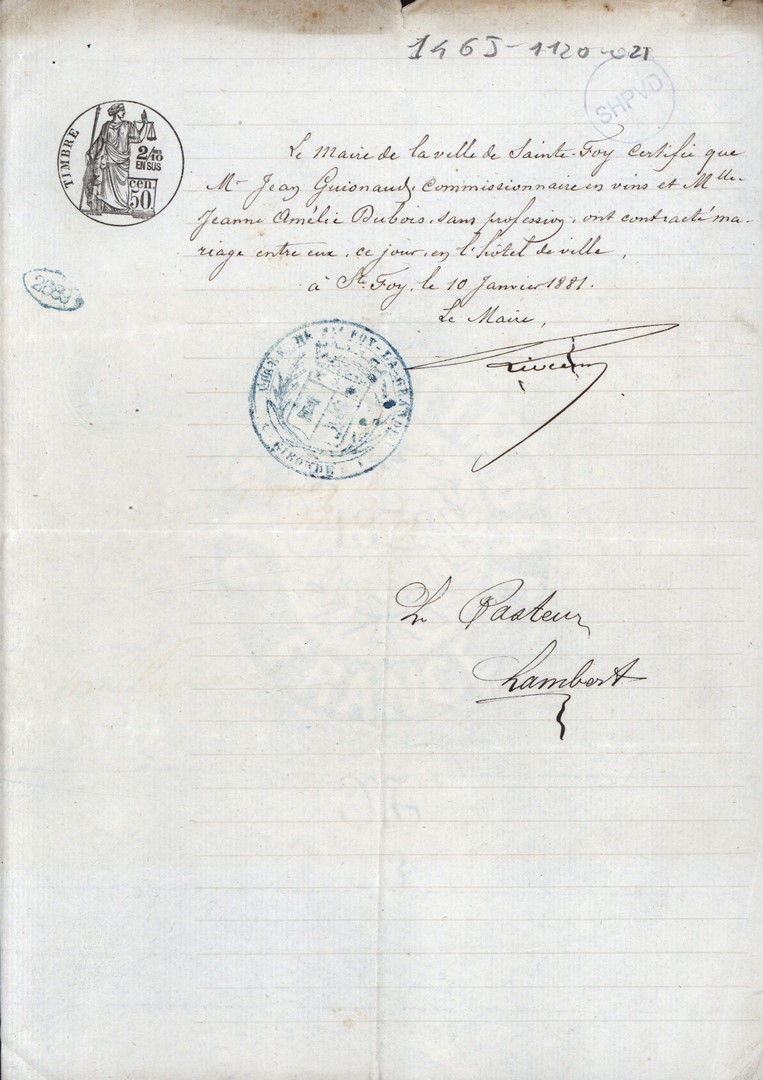 146J-1120-021
SHPVD
TIMBRE
2/10
EN SUS
cen.
50
Le Maire de la ville de Sainte-Foy certifie que
Mr Jean Guionaud, Commissionnaire en vins et Mlle
Jeanne Amélie Dubois, sans profession, ont contracté ma-
riage entre eux, ce jour, en l'hôtel de ville.
à Ste Foy, le 10 Janvier 1881.
Le Maire,
2889
MAIRIE DE Ste FOY-LA-GRANDE
GIRONDE
Le Pasteur
Lambert